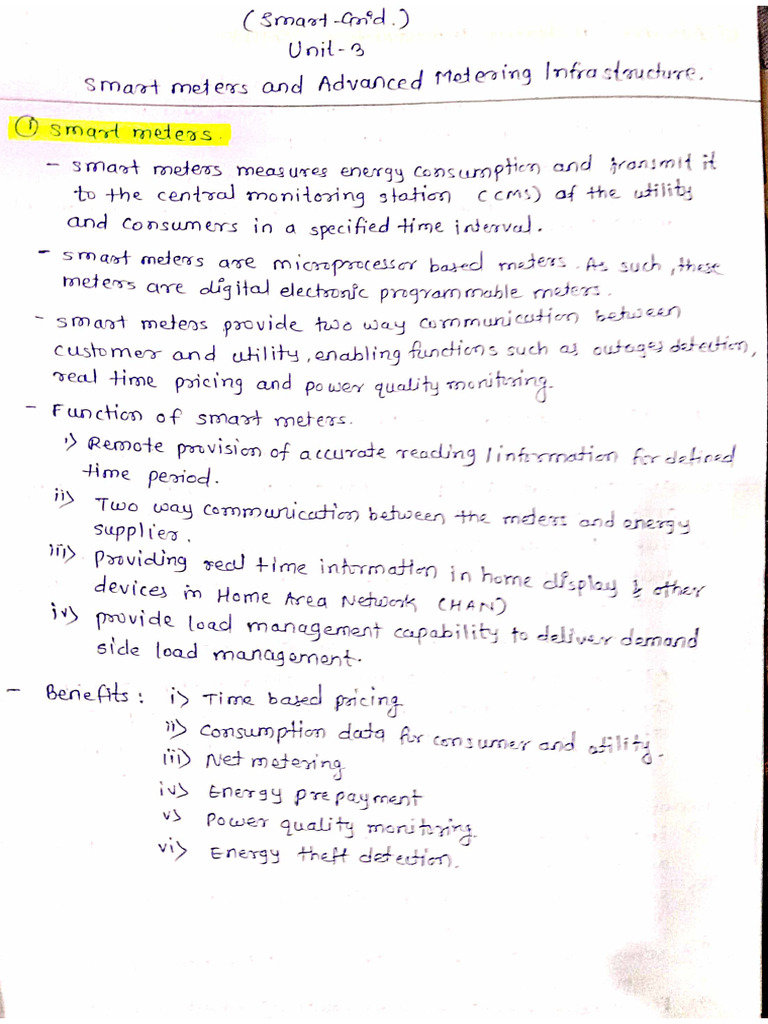 (Smart-Grid.)
Unit-3
Smart meters and Advanced Metering Infrastructure.
① Smart meters.
- Smart meters measures energy consumption and transmit it
to the central monitoring station (CCMS) of the utility
and consumers in a specified time interval.
- Smart meters are microprocessor based meters. As such, these
meters are digital electronic programmable meters.
- Smart meters provide two way communication between
customer and utility, enabling functions such as outages detection,
real time pricing and power quality monitoring.
- Function of smart meters.
i) Remote provision of accurate reading / information for defined
time period.
ii) Two way communication between the meters and energy
supplier.
iii) Providing real time information in home display & other
devices in Home Area Network (HAN)
iv) provide load management capability to deliver demand
side load management.
- Benefits: i) Time based pricing
ii) Consumption data for consumer and utility.
iii) Net metering
iv) Energy prepayment
v) Power quality monitoring.
vi) Energy theft detection.